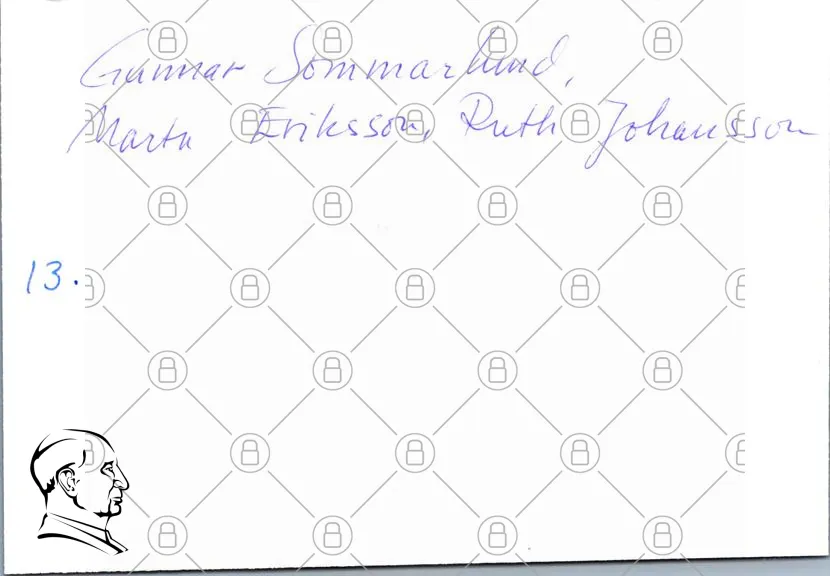 Gunnar Sommarlund,
Marta Eriksson, Ruth Johansson
13.